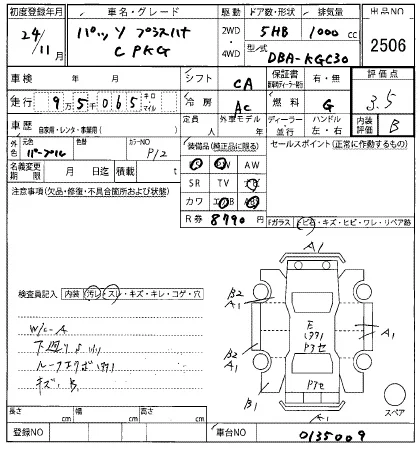 初度登録年月 車名・グレード 駆動 ドア数・形状 排気量 出品NO
24/11月 パッソ プラスハナ 2WD・4WD 5HB 1000cc 2506
C PKG 型式 DBA-KGC30
車検 年 月 シフト CA 保証書 有・無 評価点
走行 9万5千065 キロ・マイル 冷房 AC 燃料 G 3.5
車歴 自家用・レンタ・事業用( ) 定員 人 外車モデル 年 ディーラー・並行 ハンドル 左・右 内装評価 B
外色 元色 パープル 色替 カラーNO P12 装備品(純正品に限る) セールスポイント(正常に作動するもの)
名義変更期限 月 日迄 積載 t PS PW AW
注意事項(欠品・修復・不具合箇所および状態) SR TV ナビ
カワ エアB ABS
R券 8790 円 Fガラス ヒビ・キズ・ヒビ・ワレ・リペア跡
A1
検査員記入 内装 汚レ・スレ・キズ・キレ・コゲ・穴
B2 A1 A1
W/C-A
E
下廻りサビ小 A1
B2 A1 Pアセ
キズ、B
Pアセ
B1 A1 スペア
長さ cm 幅 cm 高さ cm
登録NO 車台NO 0135009